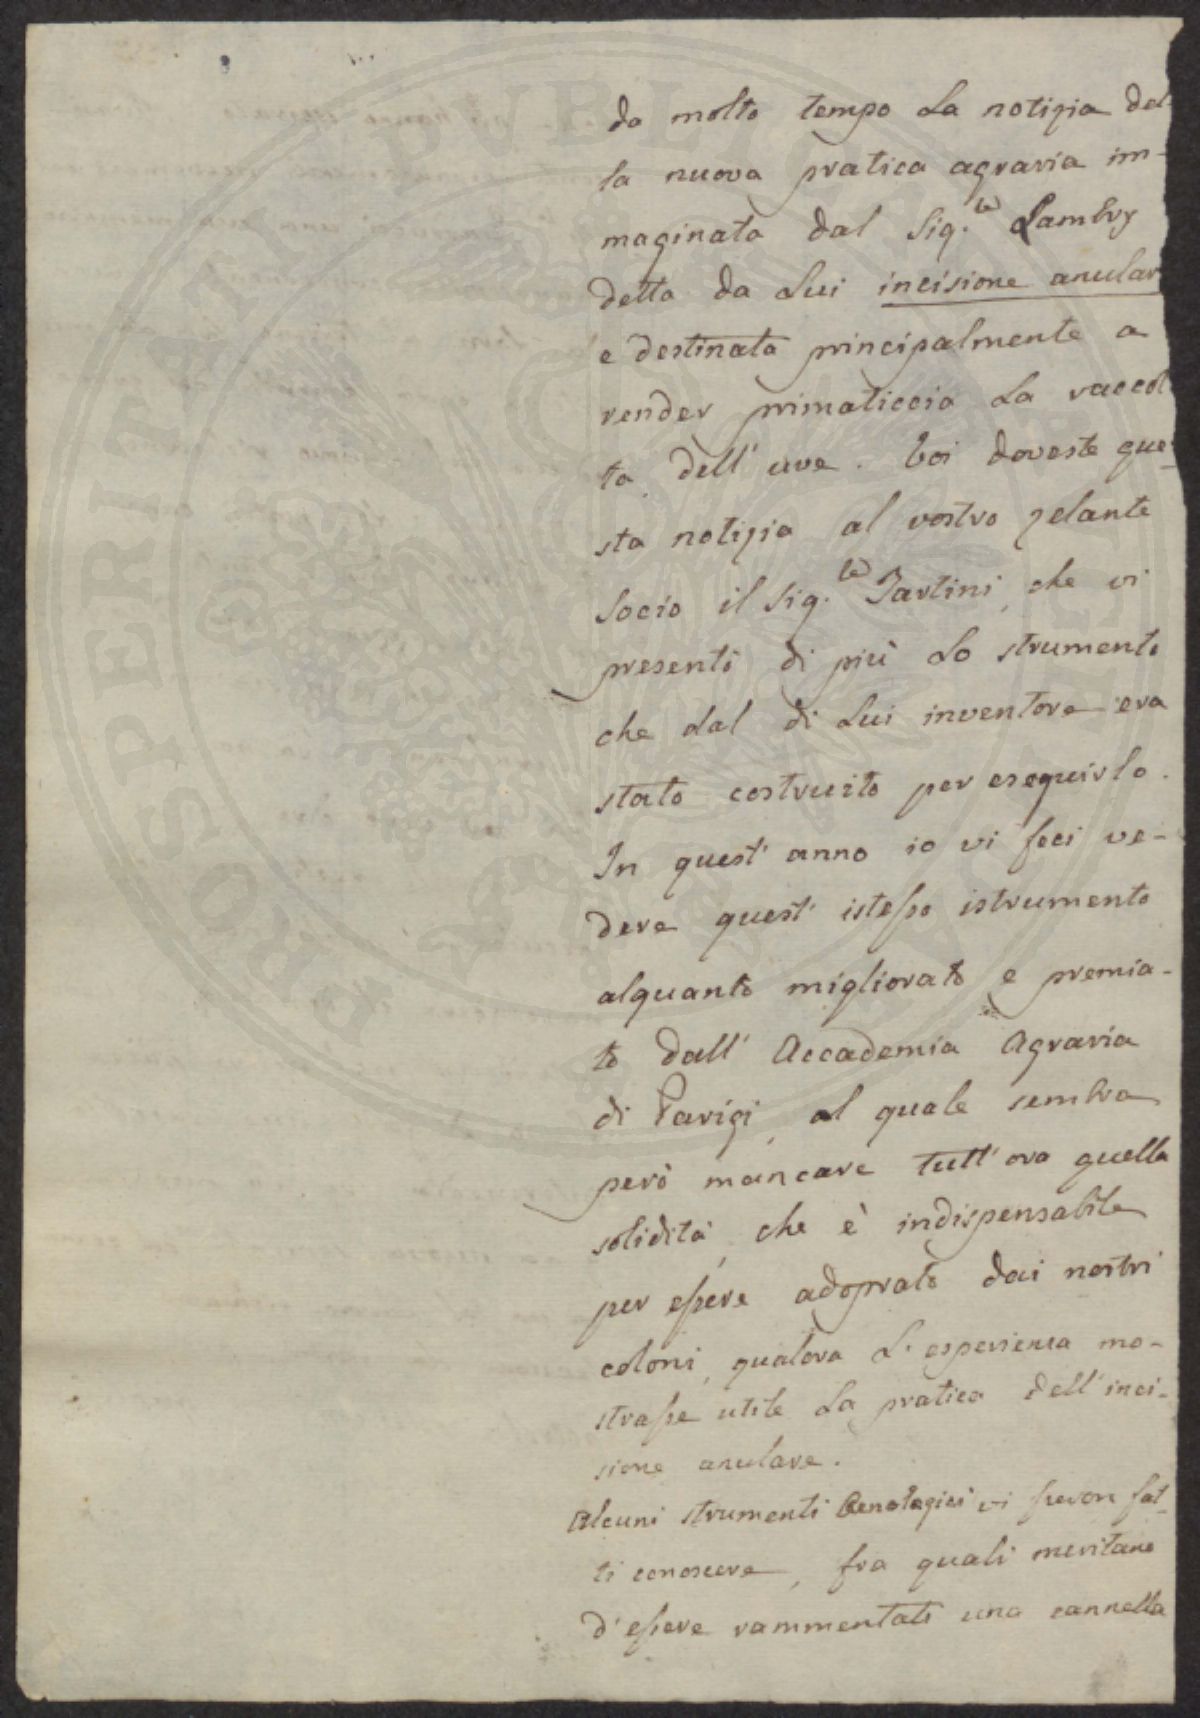 da molto tempo la notizia del-
la nuova pratica agraria im-
maginata dal Sig.re Lambry
detta da Lui incisione anular
e destinata principalmente a
render primaticcia la raccol
ta dell'uve. Voi doveste que-
sta notizia al vostro zelante
Socio il Sig.re Tartini, che vi
presentò di più lo strumento
che dal di Lui inventore era
stato costruito per eseguirlo.
In quest'anno io vi feci ve-
dere quest'istesso istrumento
alquanto migliorato e premia-
to dall'Accademia Agraria
di Parigi, al quale sembra
però mancare tutt'ora quella
solidità, che è indispensabile
per essere adoprato dai nostri
coloni, qualora l'esperienza mo-
strasse utile la pratica dell'inci-
sione anulare.
Alcuni strumenti Oenologici vi furon fat-
ti conoscere, fra quali meritano
d'essere rammentati una cannella
PVBLICAE
PROSPERITATI